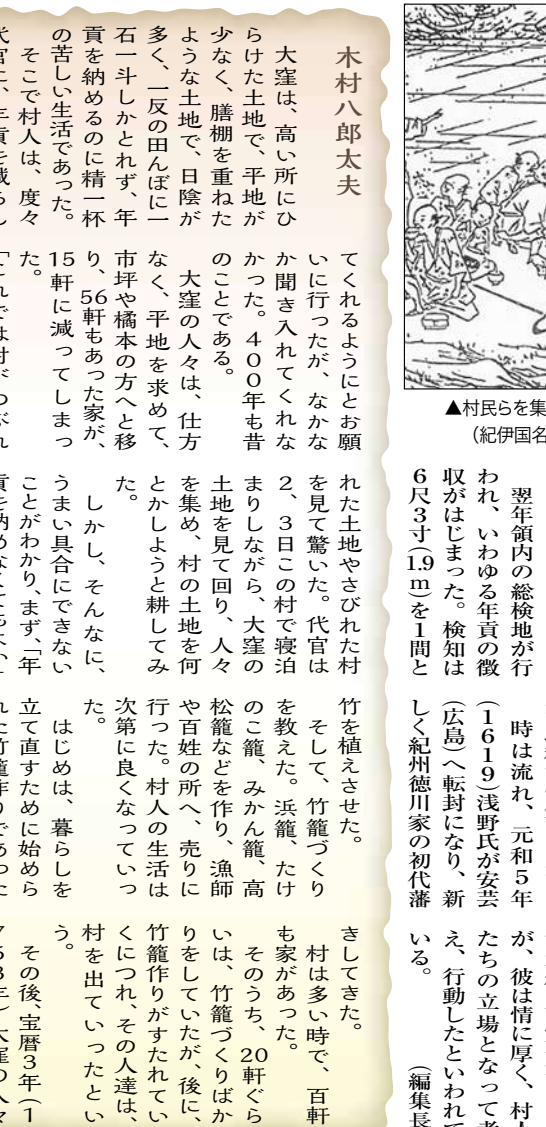 ▲村民らを集
（紀伊国名
翌年領内の総検地が行
われ、いわゆる年貢の徴
収がはじまった。検知は
6尺3寸(1.9m)を1間と
時は流れ、元和5年
(1619)浅野氏が安芸
(広島)へ転封になり、新
しく紀州徳川家の初代藩
が、彼は情に厚く、村人
たちの立場となって考
え、行動したといわれて
いる。　　（編集長
木村八郎太夫
大窪は、高い所にひ
らけた土地で、平地が
少なく、膳棚を重ねた
ような土地で、日陰が
多く、一反の田んぼに一
石一斗しかとれず、年
貢を納めるのに精一杯
の苦しい生活であった。
そこで村人は、度々
代官に、年貢を減らし
てくれるようにとお願
いに行ったが、なかな
か聞き入れてくれな
かった。400年も昔
のことである。
大窪の人々は、仕方
なく、平地を求めて、
市坪や橘本の方へと移
り、56軒もあった家が、
15軒に減ってしまっ
た。
「これでは村がつぶれ
れた土地やさびれた村
を見て驚いた。代官は
2、3日この村で寝泊
まりしながら、大窪の
土地を見て回り、人々
を集め、村の土地を何
とかしようと耕してみ
た。
しかし、そんなに、
うまい具合にできない
ことがわかり、まず、「年
貢を納めなくともよい、
竹を植えさせた。
そして、竹籠づくり
を教えた。浜籠、たけ
のこ籠、みかん籠、高
松籠などを作り、漁師
や百姓の所へ、売りに
行った。村人の生活は
次第に良くなっていっ
た。
はじめは、暮らしを
立て直すために始めら
れた竹籠作りであった
きしてきた。
村は多い時で、百軒
も家があった。
そのうち、20軒ぐら
いは、竹籠づくりばか
りをしていたが、後に、
竹籠作りがすたれてい
くにつれ、その人達は、
村を出ていったとい
う。
その後、宝暦3年(1
大窪の人々